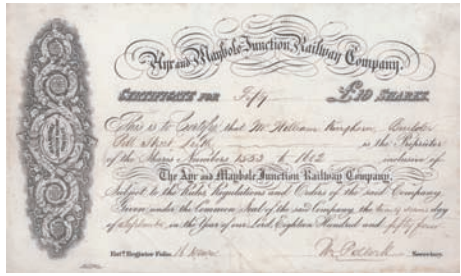 Ayr and Maybole Junction Railway Company.
CERTIFICATE FOR Fifty £10 SHARES.
This is to Certify that Mr. William
Pitt Street Leith is the Proprietor
of the Shares Numbers 1553 to 1602 inclusive of
The Ayr and Maybole Junction Railway Company,
Subject to the Rules, Regulations and Orders of the said Company
Given under the Common Seal of the said Company, the day
of September in the Year of our Lord, Eighteen Hundred and fifty four
Entd. Register Folio Secretary.